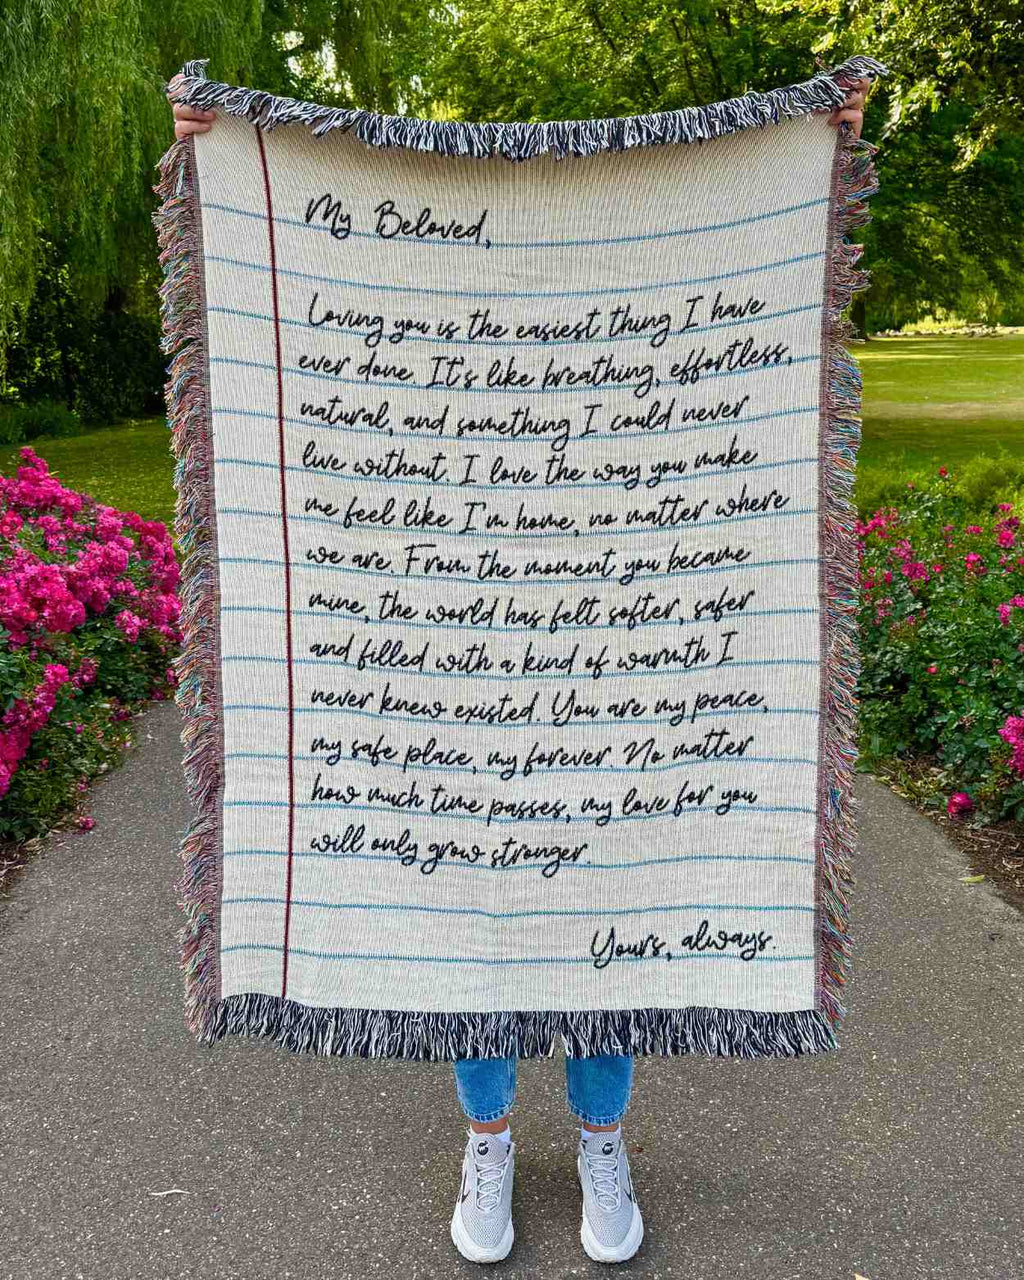 My Beloved,
Loving you is the easiest thing I have
ever done. It's like breathing, effortless,
natural, and something I could never
live without. I love the way you make
me feel like I'm home, no matter where
we are. From the moment you became
mine, the world has felt softer, safer
and filled with a kind of warmth I
never knew existed. You are my peace,
my safe place, my forever. No matter
how much time passes, my love for you
will only grow stronger.
Yours, always.